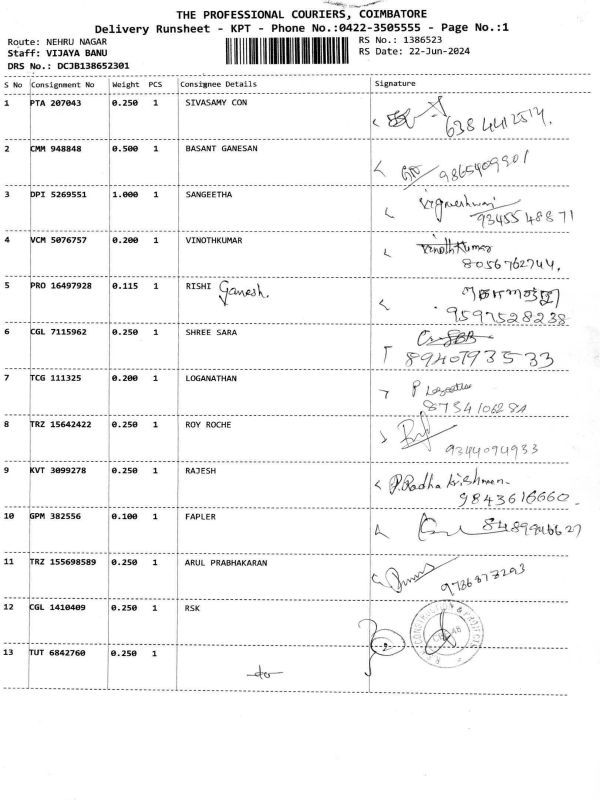 THE PROFESSIONAL COURIERS, COIMBATORE
Delivery Runsheet - KPT - Phone No.:0422-3505555 - Page No.:1
Route: NEHRU NAGAR
RS No.: 1386523
Staff: VIJAYA BANU
RS Date: 22-Jun-2024
DRS No.: DCJB138652301
S No Consignment No Weight PCS Consignee Details Signature
1 PTA 207043 0.250 1 SIVASAMY CON
6384412514.
2 CMM 948848 0.500 1 BASANT GANESAN
9865409901
3 DPI 5269551 1.000 1 SANGEETHA Vigneshwari
9345548871
4 VCM 5076757 0.200 1 VINOTHKUMAR Vinothkumar
8056762744.
5 PRO 16497928 0.115 1 RISHI Ganesh.
9597528238
6 CGL 7115962 0.250 1 SHREE SARA
8940793533
7 TCG 111325 0.200 1 LOGANATHAN
8 TRZ 15642422 0.250 1 ROY ROCHE
9344094933
9 KVT 3099278 0.250 1 RAJESH P.Radha krishnan.
9843616660.
10 GPM 382556 0.100 1 FAPLER
8489946627
11 TRZ 155698589 0.250 1 ARUL PRABHAKARAN
9786873293
12 CGL 1410409 0.250 1 RSK
2
13 TUT 6842760 0.250 1
do